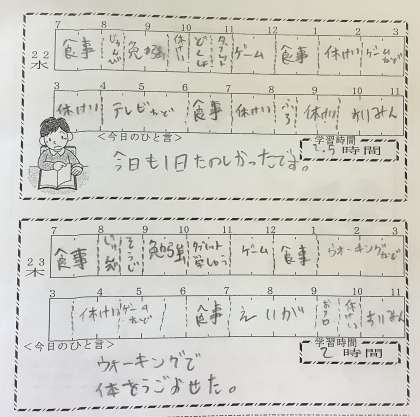 7 8 9 10 11 12 1 2 3
22 水 食事 じゅんび 勉強 休けい どくしょ タブレット ゲーム 食事 休けい ゲームかど
3 4 5 6 7 8 9 10 11
休けい テレビかど 食事 休けい 休けい すいみん
<今日のひと言>
今日も1日たのしかったです。
学習時間
2.5 時間
7 8 9 10 11 12 1 2 3
23 木 食事 そうじ 勉強 タブレット ゲーム 食事 ウォーキングかど
3 4 5 6 7 8 9 10 11
休けい ゲームかど 食事 えいが おフロ 休けい すいみん
<今日のひと言>
ウォーキングで
体をうごかせた。
学習時間
2 時間